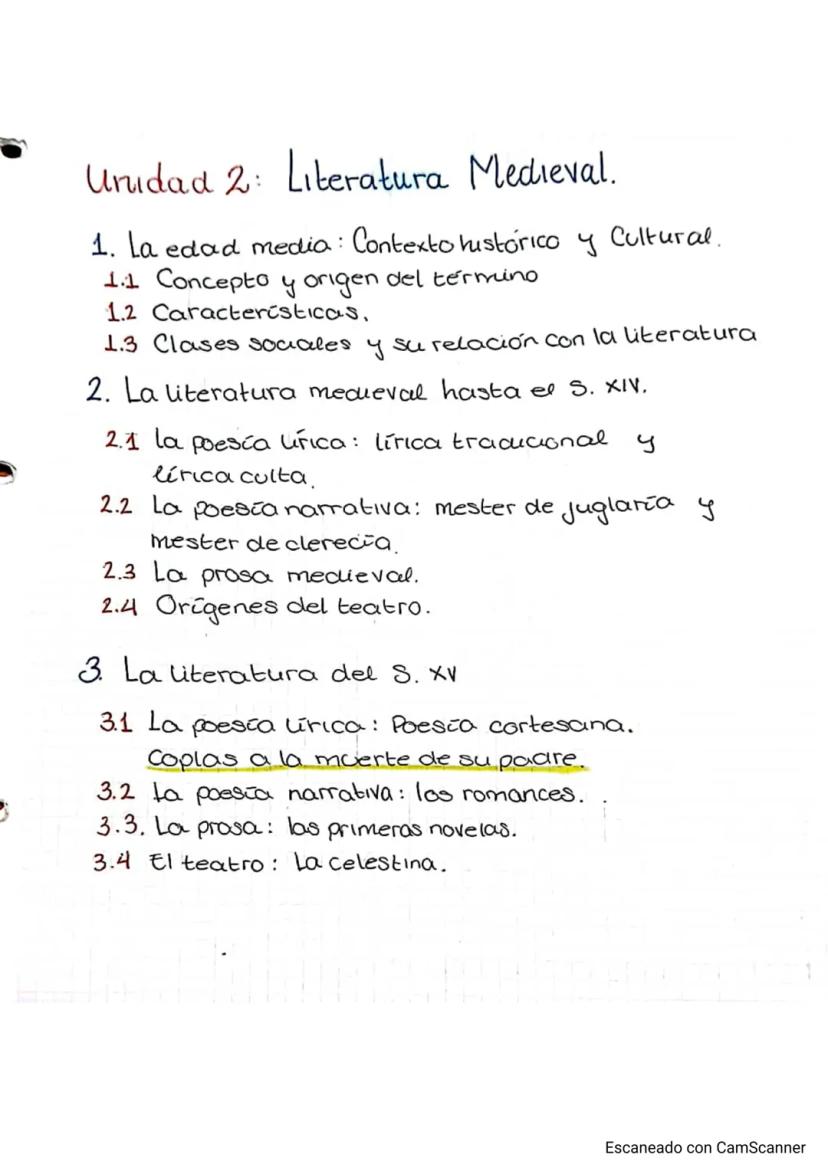 Unidad 2: Literatura Medieval.
1. La edad media: Contexto histórico y Cultural.
1.1 Concepto y origen del término
1.2 Características.
1.3 Clases sociales y su relación con la literatura
2. La literatura medieval hasta el S. XIV.
2.1 la poesía lírica: lírica tradicional y
lírica culta.
2.2 La poesía narrativa: mester de juglaría y
mester de clerecía.
2.3 La prosa medieval.
2.4 Orígenes del teatro.
3. La literatura del S. XV
3.1 La poesía lírica: Poesía cortesana.
Coplas a la muerte de su padre.
3.2 La poesía narrativa: los romances.
3.3. La prosa: las primeras novelas.
3.4 El teatro: La celestina.
Escaneado con CamScanner